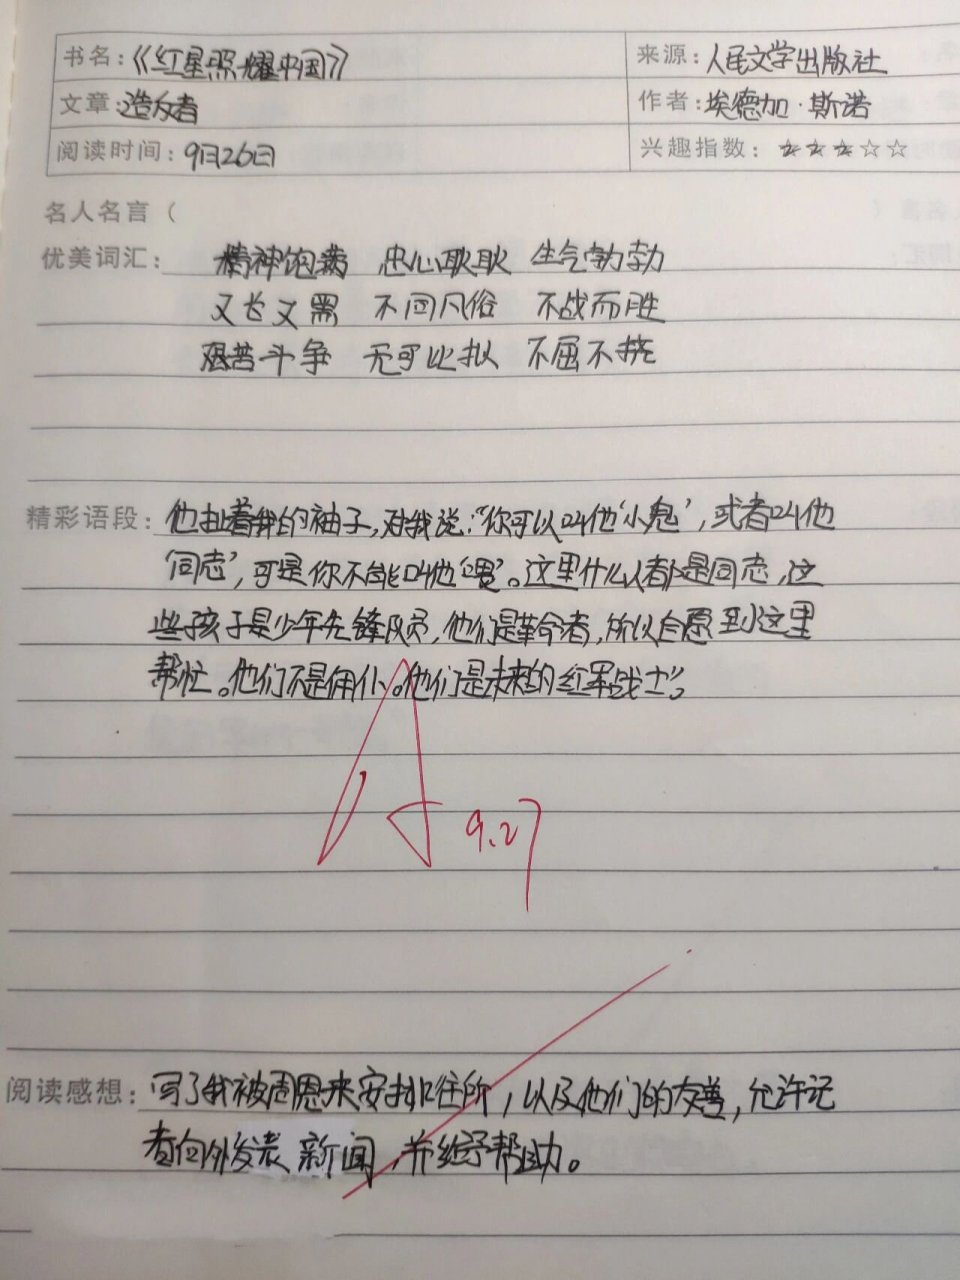 书名:《红星照耀中国》 来源:人民文学出版社
文章:造反者 作者:埃德加·斯诺
阅读时间:9月26日 兴趣指数:☆☆☆☆☆
名人名言(
优美词汇: 精神饱满 忠心耿耿 生气勃勃
又长又黑 不同风俗 不战而胜
艰苦斗争 无可比拟 不屈不挠
精彩语段:他扯着我的袖子,对我说:“你可以叫他‘小鬼’,或者叫他
‘同志’,可是你不能叫他‘喂’。这里什么人都是同志,这
些孩子是少年先锋队员,他们是革命者,所以自愿到这里
帮忙。他们不是佣仆。他们是未来的红军战士”。
A 9.27
阅读感想:写了我被周恩来安排住所,以及他们的友善,允许记
者向外发表新闻,并给予帮助。